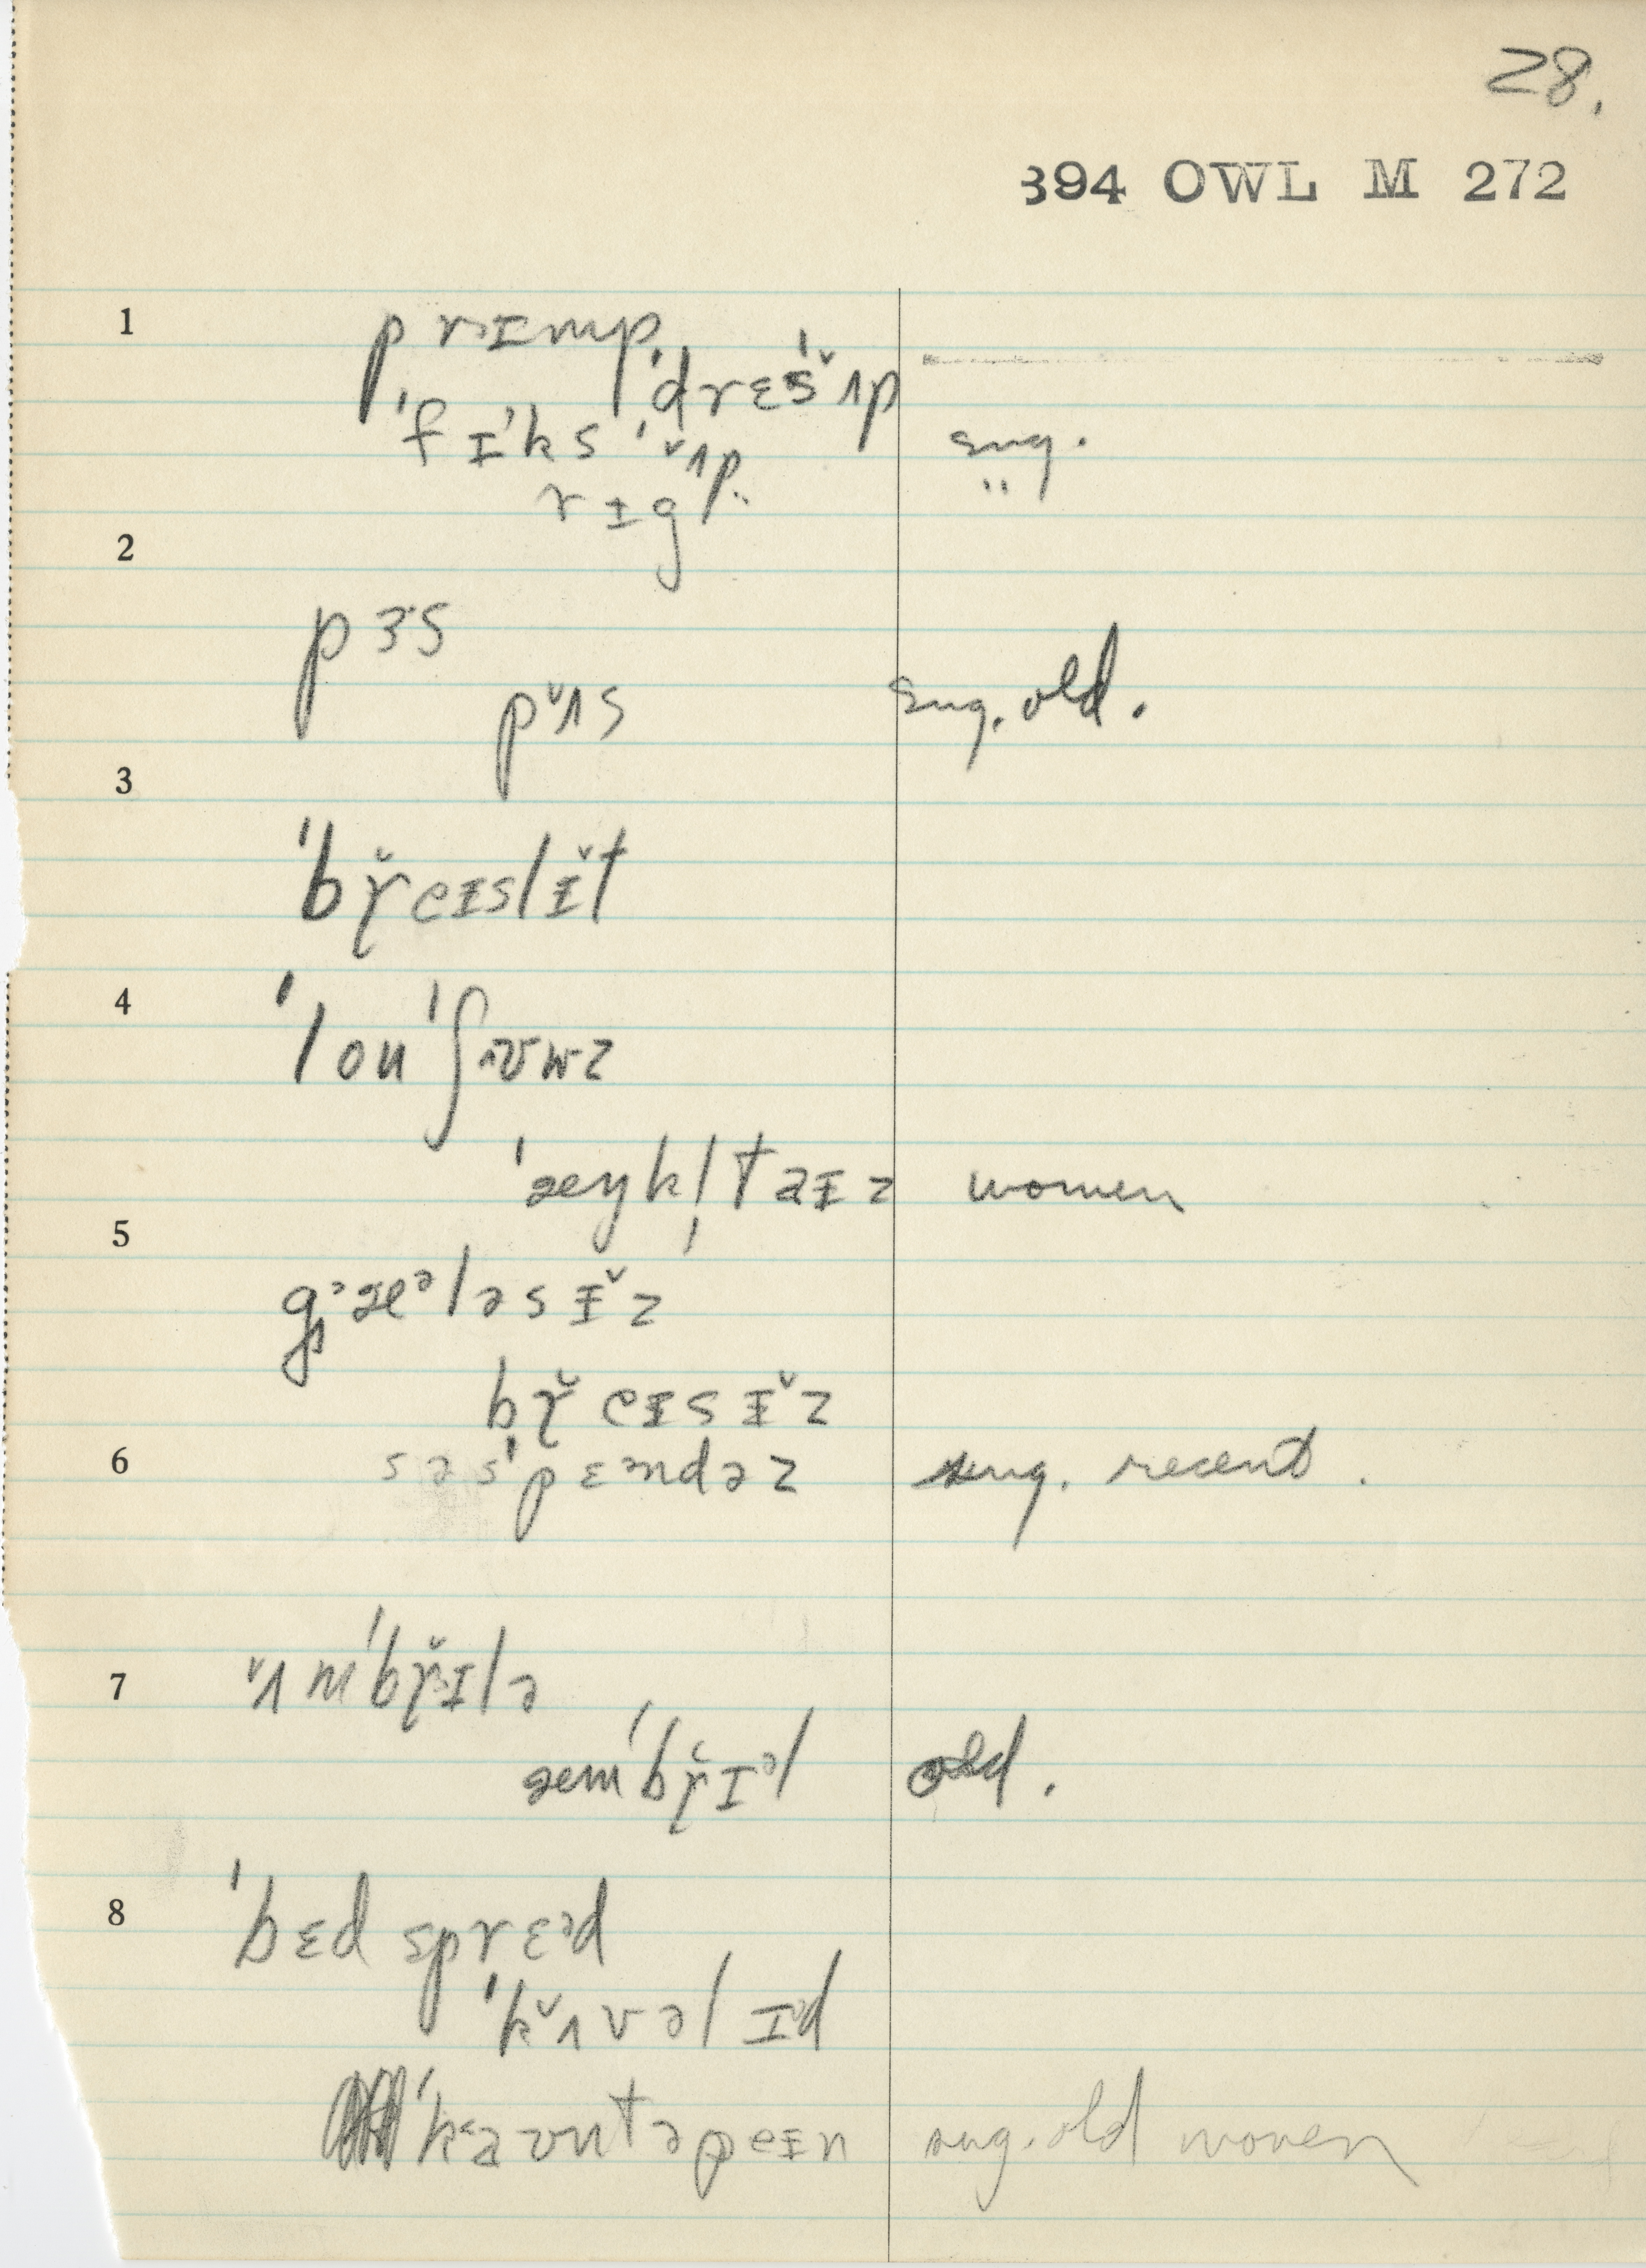 28.
394 OWL M 272
1 prɪmp
ˈdrɛˈs ʌ̌p
ˈfɪˈks ˈʌ̌p sug.
rɪg ʌp "
2
pɜs
pʌ̌s sug. old.
3
ˈbɤ̌eɪslɪ̌t
4 ˈloʊˈʃʊuz
ˈæŋkl̩taɪz women
5
gᵊæᵊləsɪ̌z
bɤ̌eɪsɪ̌z
6 səsˈpɛᵊndəz sug. recent.
7 ʌ̌mˈbɤ̌ɪlə
æmˈbɤ̌ɪᵊl old.
8 ˈbɛd sprɛᵊd
ˈkʌ̌vəlɪd
ˈkaʊntəpeɪn sug. old woven